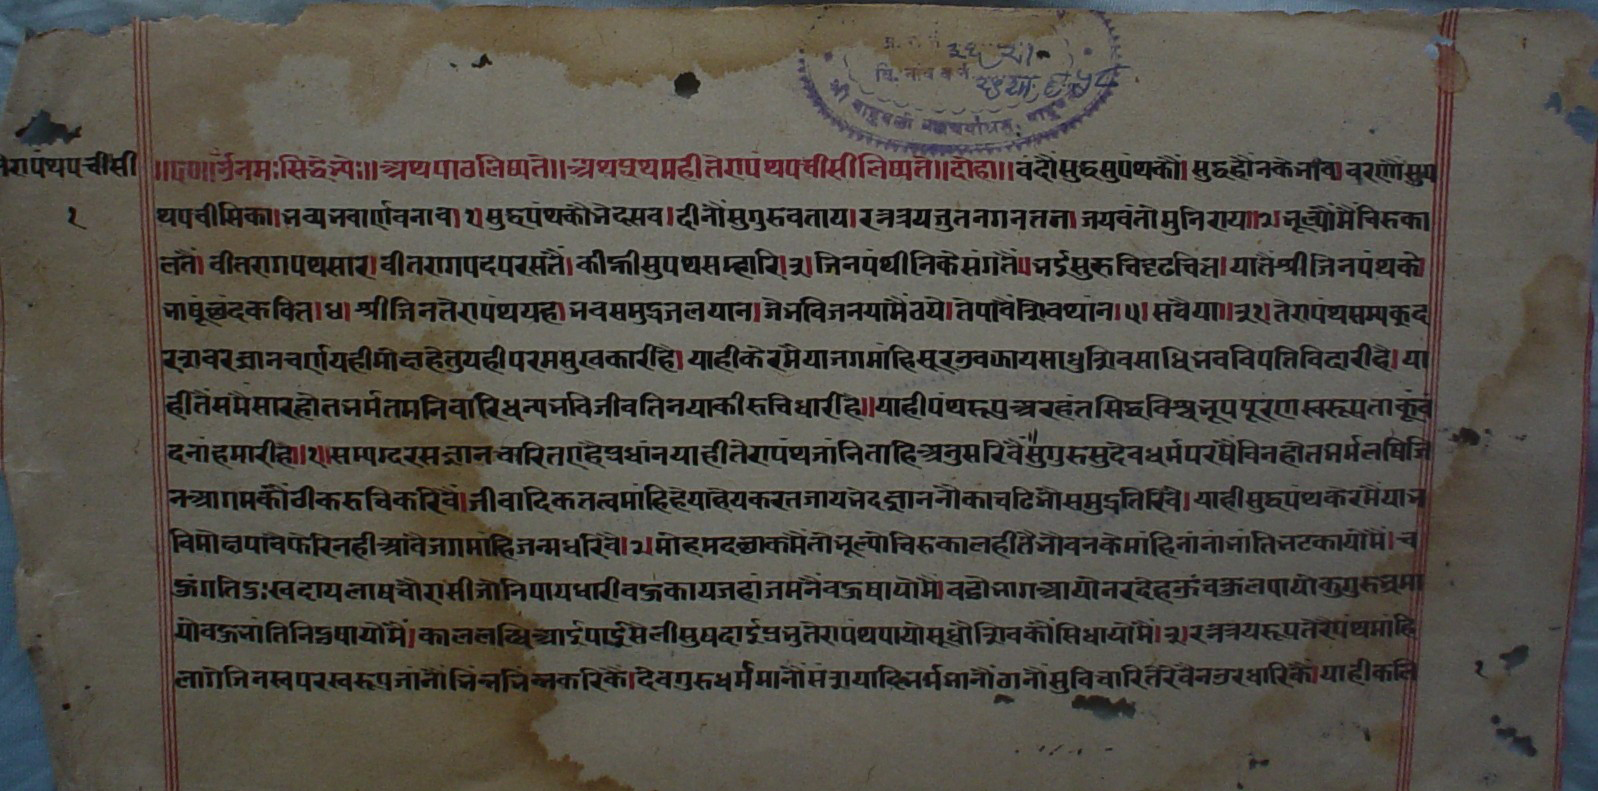 तेरापंथपचीसी
१
॥ॐनमःसिद्धेभ्यः॥अथपाठलिष्यते॥अथप्रथमहीतेरापंथपचीसीलिष्यते॥दोहा॥वंदौंसुद्धसुपंथकौं।सुद्धहौंनकेभाव।वरणौंसुप
थपचीसिका।भव्यभवार्णवनाव।१सुद्धपंथकौभेदसव।दीनौंसुगुरुवताय।रत्नत्रयजुतनगनतन।जयवंतौमुनिराय॥२भूल्यौमैंचिरुका
लतैं।वीतरागपथसार।वीतरागपदपरसतैं।कीन्हीसुपथसम्हारि।३।जिनपंथीनिकेसंगतैं।भईसुरुचिदृढचित्त।यातैंश्रीजिनपंथके
भाषूंछंदकवित्त।४।श्रीजिनतेरापंथयह।भवसमुद्रजलयान।जेभविजनयामैंठये।तेपावैंशिवथांन।५।सवैया॥३१।तेरापंथसम्यकद
रशवरज्ञानचर्णयहीमोक्षहेतुयहीपरमसुखकारीहै।याहीकेरमैयाजगमांहि साधुशिवसाधिभवविपत्तिविदारीहै।या
हीतैंसमैसारहोतभर्मतमनिवारिधन्यभविजीवतिनयाकीरुचिधारीहै॥याहीपंथरूपअरहंतसिद्धविश्वभूपपूरणस्वरूपताकूंवं
दनांहमारीहै॥१।सम्यग्दरसज्ञानचारितएहैप्रधांनयाहीतेरापंथजांनिताहिअनुसरिवैं।सुगुरुसुदेवधर्मपरषैविनहोतभर्मलषिजि
नआगमकौंठीकरुचिकरिवैं।जीवादिकतत्वमांहिहेयाहेयकरतजायभेदज्ञाननौकाचढिभौसमुद्रतिरिवैं।याहीसुद्धपंथकेरमैयाभ
विमोक्षपावैंफेरिनहीआंवैजगमांहिजन्मधरिवै।२मोहमदछाकमैंतोभूल्योचिरुकालहीतैभौवनकेमांहिनांनांभांतिभटकायोमैं।च
हुंगतिदुःखदायलाषचौरासीजोनिपायधारीवहुकायजहांजमनैंवहुषायोमैं।वडोभागआयोनरदेह पायोकुगुरुभ्रमा
योवहुभांतिनिदुषपायोमैं।काललब्धिआईपाईसैलीसुषदाईप्रभुतेरापंथपायोसूधौशिवकौंसिधायोमैं।३।रत्नत्रयरूपतेरैपंथमांहि
लागेजिनस्वपरस्वरूपजांनौंभिन्नभिन्नकरिकैं।देवगुरुधर्ममानौंसंशयादिभर्मभानौंठानौंसुविचारि याहीकलि
१